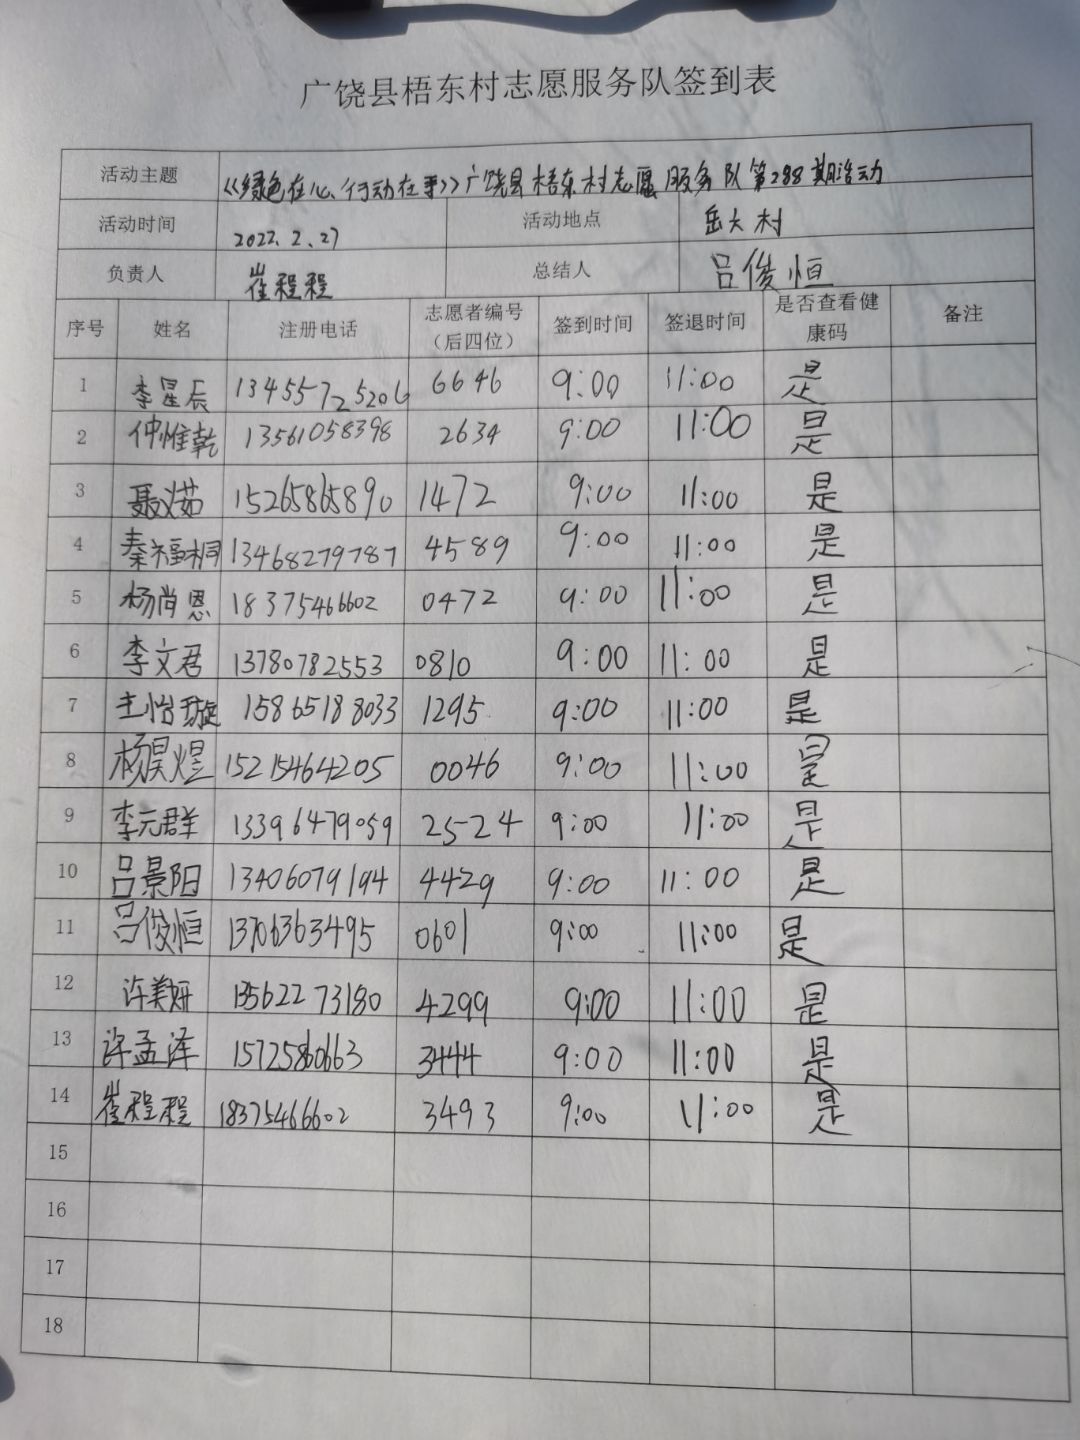 广饶县梧东村志愿服务队签到表
活动主题 《绿色在心、行动在手》广饶县梧东村志愿服务队第288期活动
活动时间 2022.2.27 活动地点 岳大村
负责人 崔程程 总结人 吕俊恒
序号 姓名 注册电话 志愿者编号（后四位） 签到时间 签退时间 是否查看健康码 备注
1 李星辰 13455725206 6646 9:00 11:00 是
2 仲惟乾 13561058398 2634 9:00 11:00 是
3 聂义茹 15265865890 1472 9:00 11:00 是
4 秦福桐 13468279787 4589 9:00 11:00 是
5 杨尚恩 18375466602 0472 9:00 11:00 是
6 李文君 13780782553 0810 9:00 11:00 是
7 王怡璇 15865188033 1295 9:00 11:00 是
8 杨昊煜 15215464205 0046 9:00 11:00 是
9 李元群 13396479059 2524 9:00 11:00 是
10 吕景阳 13406079194 4429 9:00 11:00 是
11 吕俊恒 13706363495 0601 9:00 11:00 是
12 许美妍 13562273180 4299 9:00 11:00 是
13 许孟泽 15725860663 3444 9:00 11:00 是
14 崔程程 18375466602 3493 9:00 11:00 是
15
16
17
18